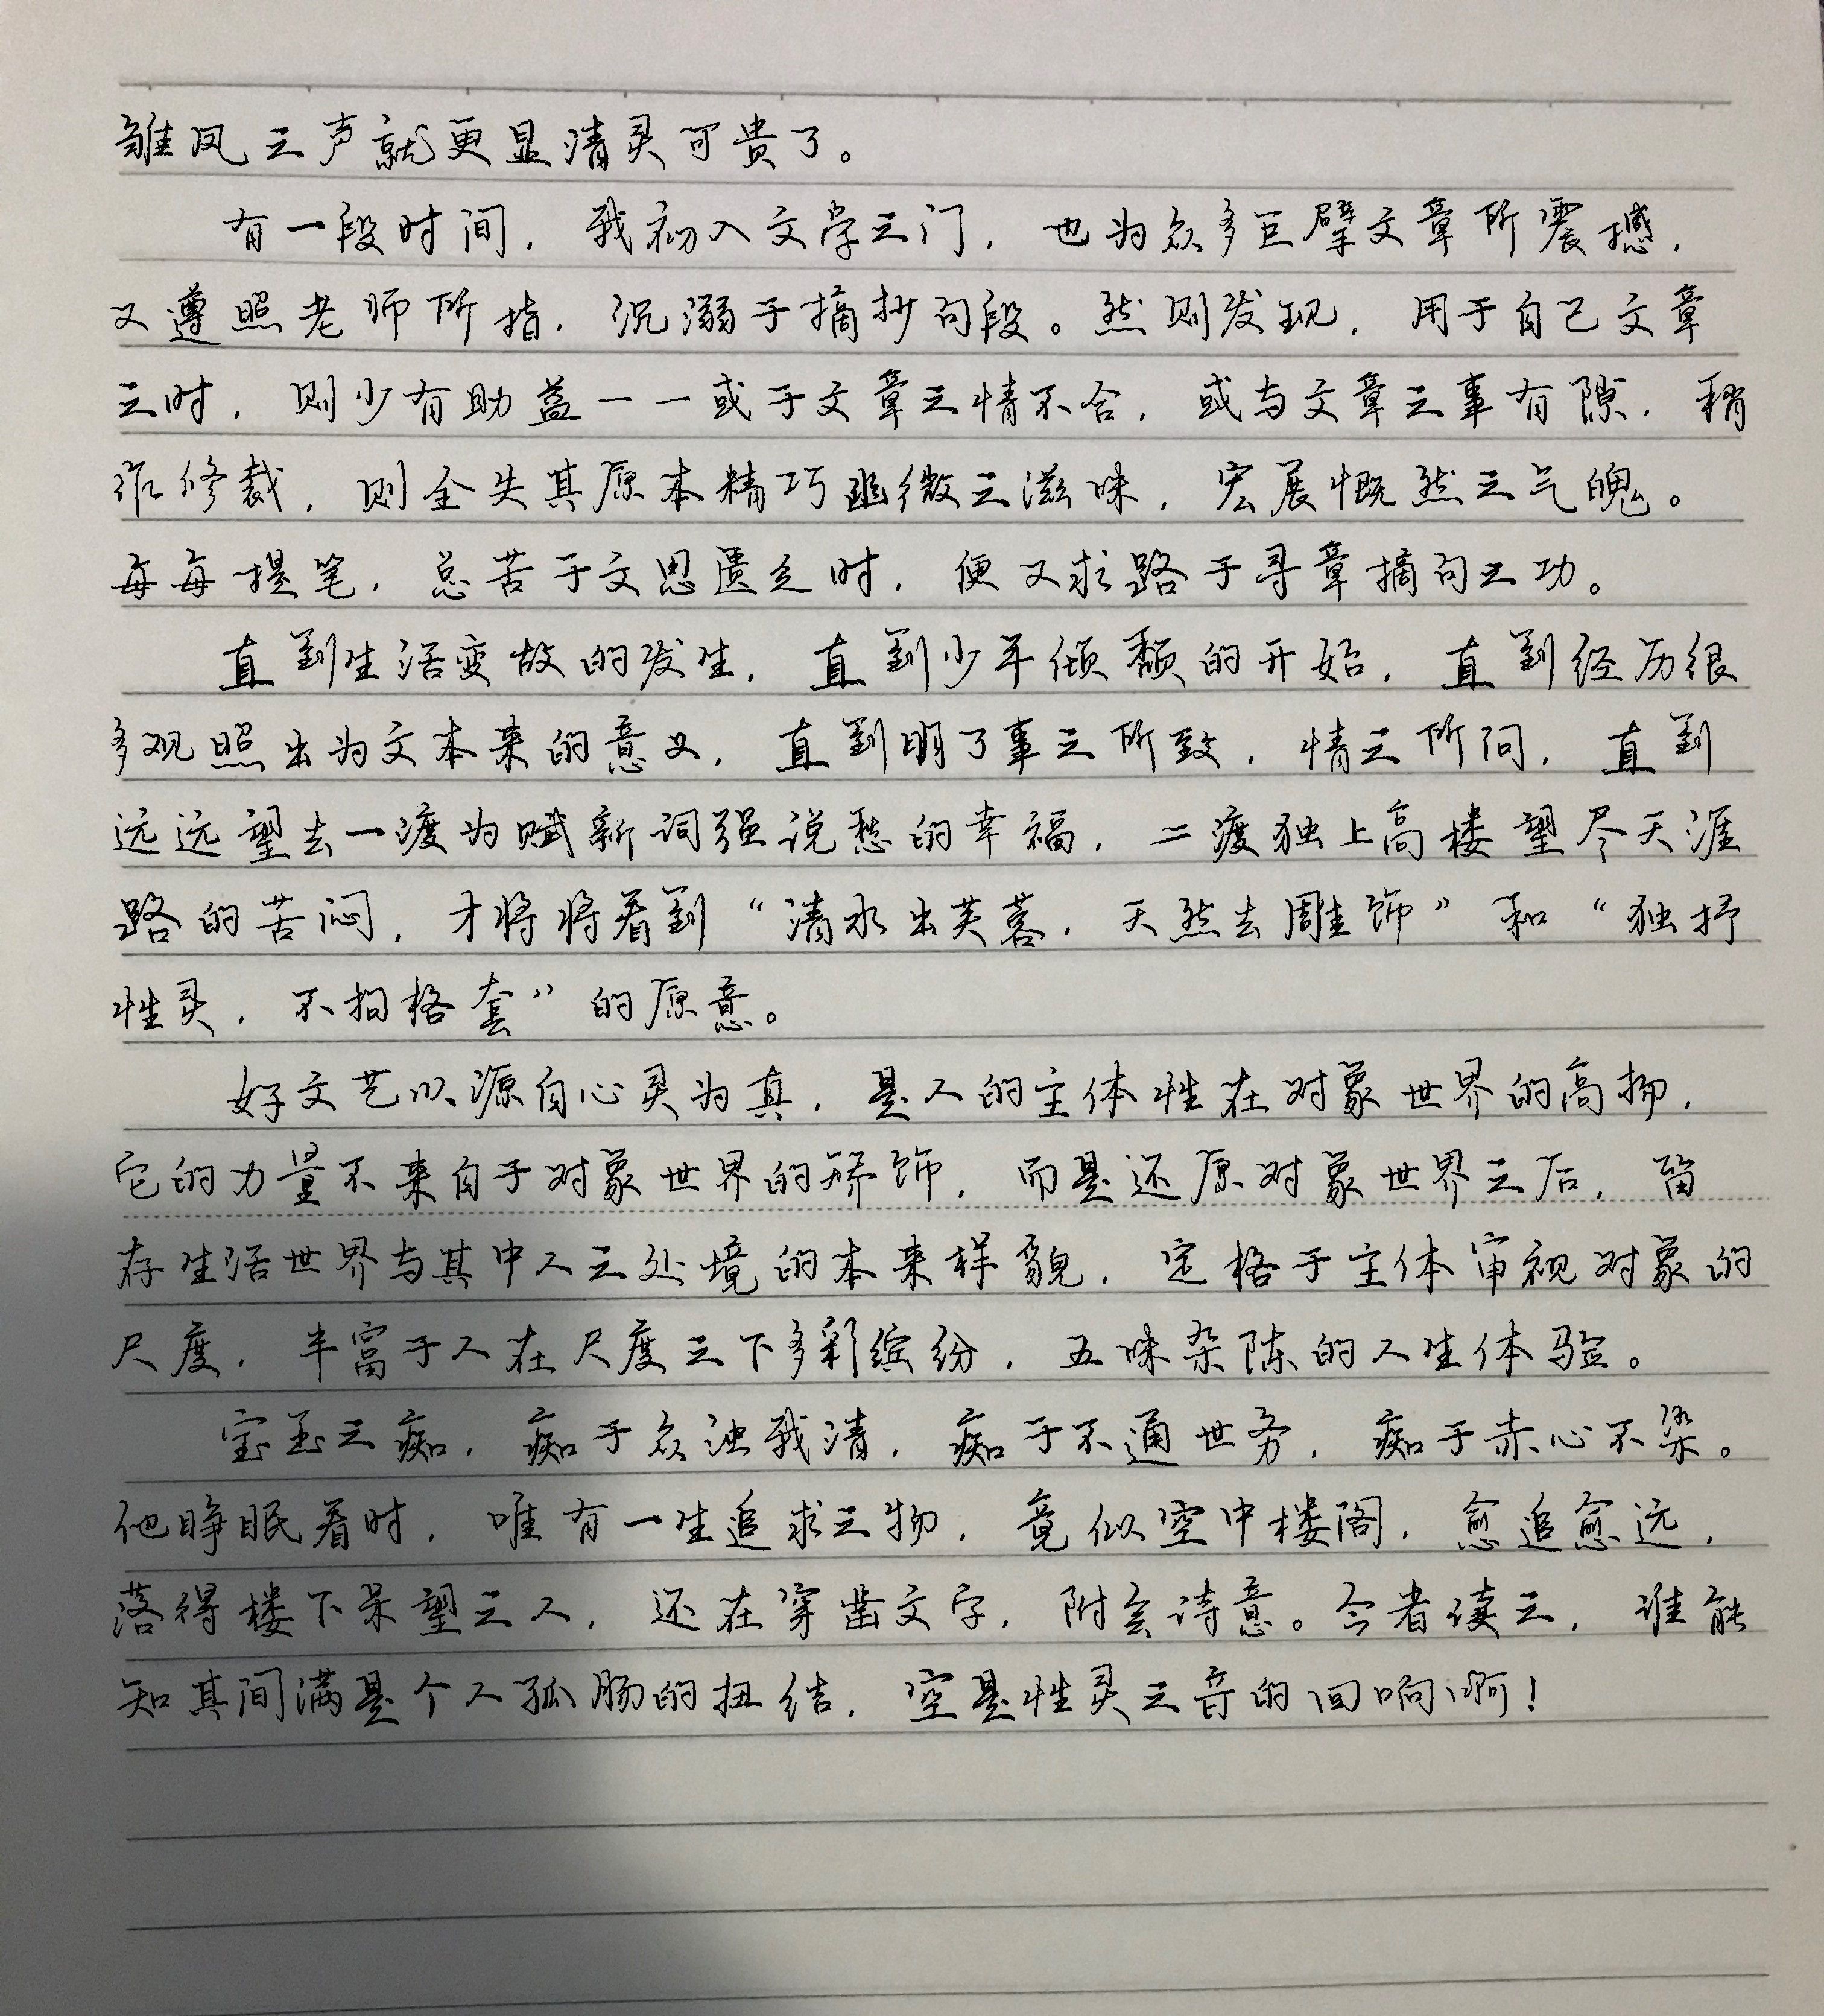 雏凤之声就更显清灵可贵了。
有一段时间，我初入文学之门，也为众多巨擘文章所震撼，
又遵照老师所指，沉溺于摘抄句段。然则发现，用于自己文章
之时，则少有助益——或于文章之情不合，或与文章之事有隙，稍
作修裁，则全失其原本精巧幽微之滋味，宏展慨然之气魄。
每每提笔，总苦于文思匮乏时，便又求路于寻章摘句之功。
直到生活变故的发生，直到少年倾颓的开始，直到经历很
多观照出为文本来的意义，直到明了事之所致，情之所问，直到
远远望去一渡为赋新词强说愁的幸福，二渡独上高楼望尽天涯
路的苦闷，才将将看到“清水出芙蓉，天然去雕饰”和“独抒
性灵，不拘格套”的原意。
好文艺以源自心灵为真，是人的主体性在对象世界的高扬，
它的力量不来自于对象世界的矫饰，而是还原对象世界之后，留
存生活世界与其中人之处境的本来样貌，定格于主体审视对象的
尺度，丰富于人在尺度之下多彩缤纷，五味杂陈的人生体验。
宝玉之痴，痴于众浊我清，痴于不通世务，痴于赤心不染。
他睁眠看时，唯有一生追求之物，竟似空中楼阁，愈追愈远，
落得楼下呆望之人，还在穿凿文字，附会诗意。今者读之，谁能
知其间满是个人孤肠的扭结，空是性灵之音的回响啊！